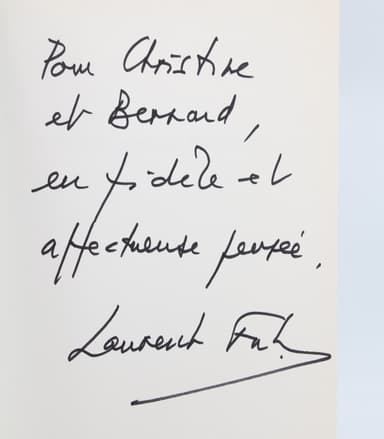 Pour Christine
et Bernard,
en fidèle et
affectueuse pensée.
Laurent